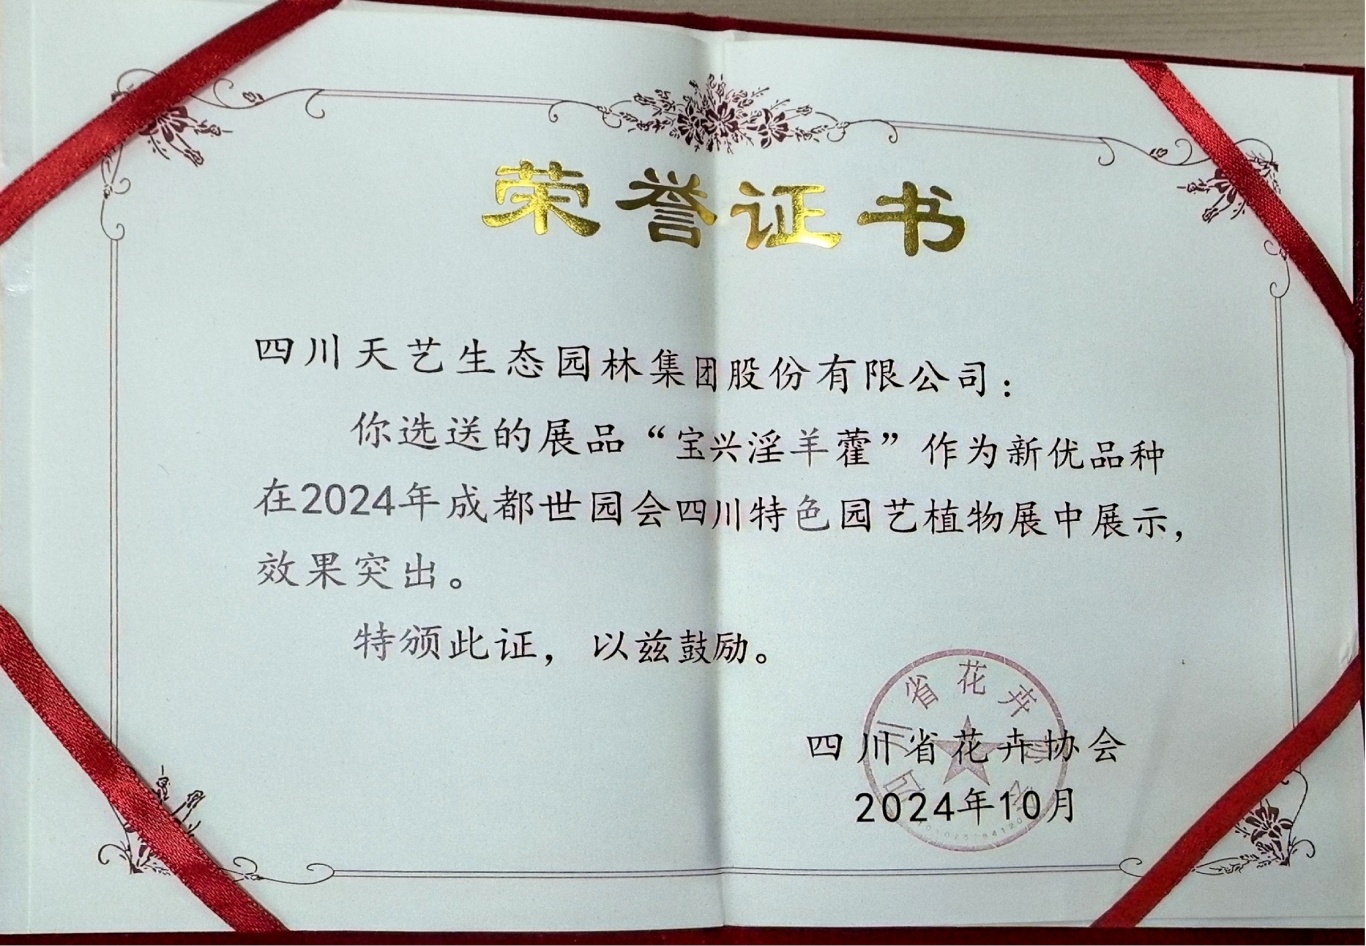 荣誉证书
四川天艺生态园林集团股份有限公司：
你选送的展品“宝兴淫羊藿”作为新优品种
在2024年成都世园会四川特色园艺植物展中展示，
效果突出。
特颁此证，以兹鼓励。
四川省花卉协会
四川省花卉协会
2024年10月